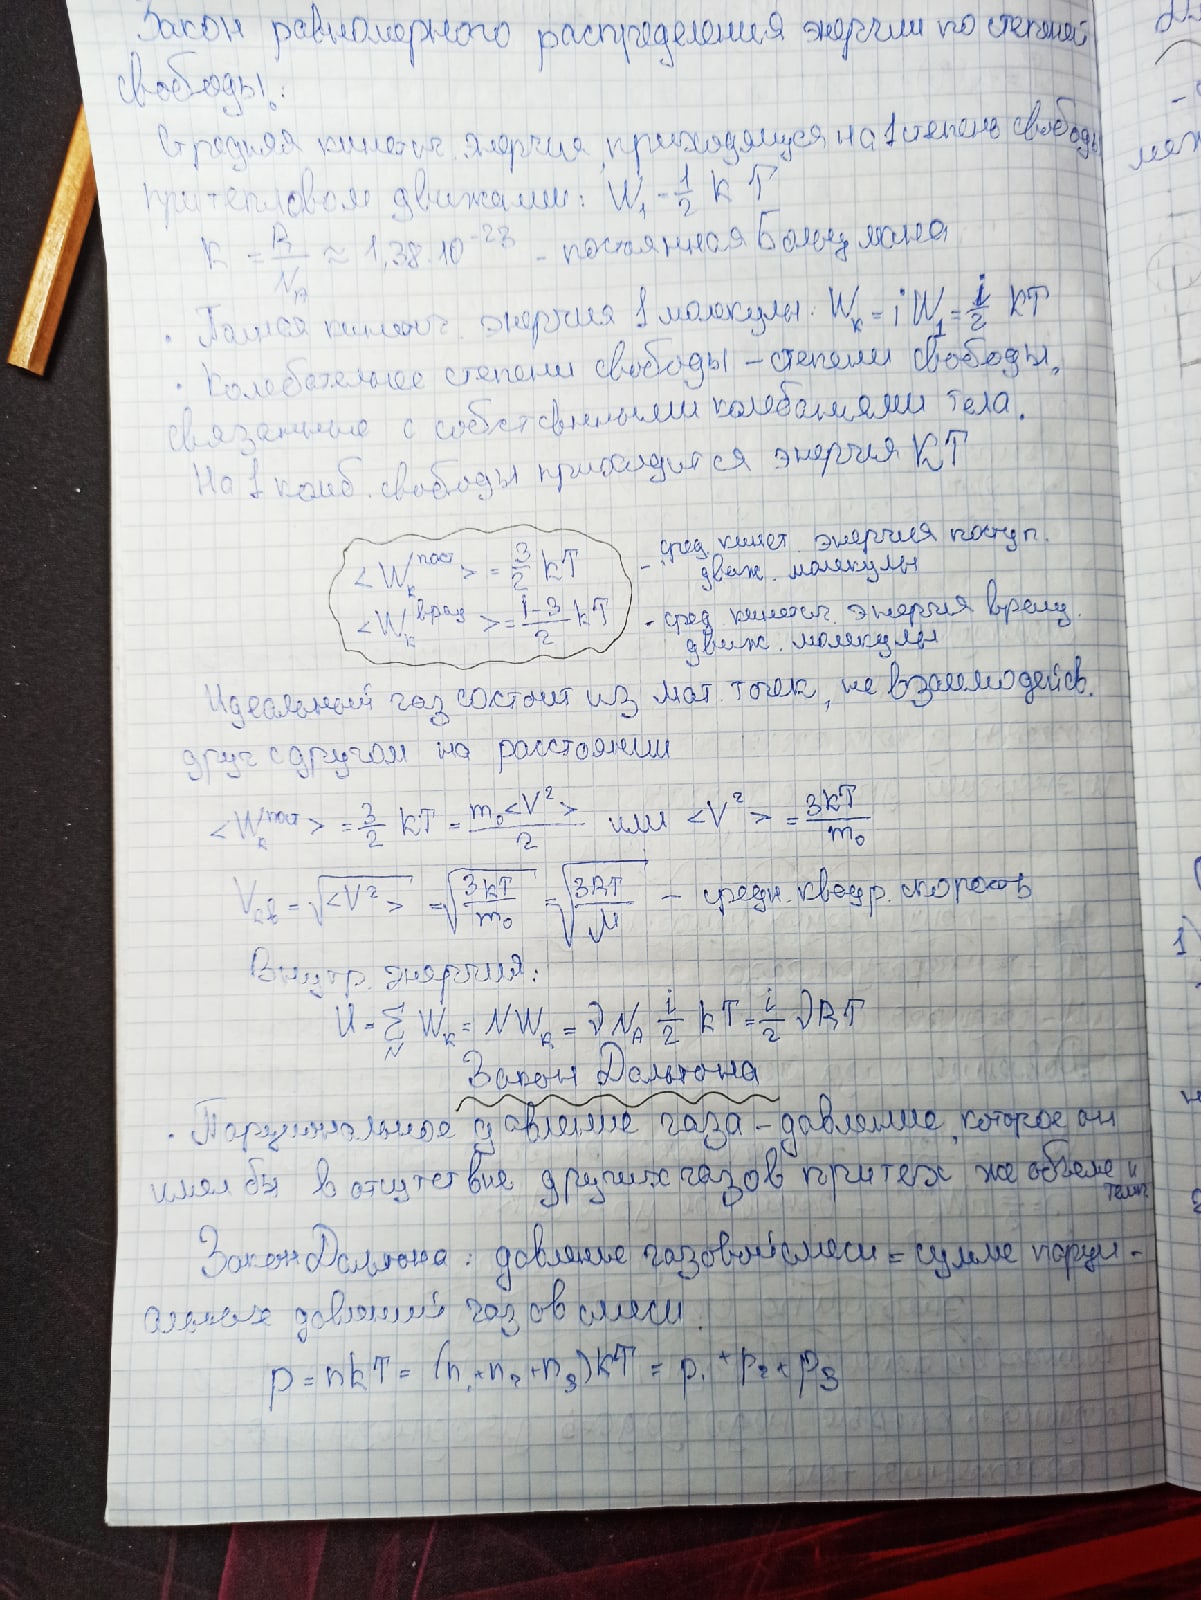 Закон равномерного распределения энергии по степеней
свободы:
Средняя кинетич. энергия, приходящуся на 1 степень свободы
при тепловом движении: W₁ = 1/2 k T
k = R/N_A ≈ 1,38·10⁻²³ - постоянная Больцмана
· Полная кинетич. энергия 1 молекулы: W_k = i W₁ = i/2 kT
· Колебательные степени свободы – степени свободы,
связанные с собственными колебаниями тела.
На 1 колеб. свободы приходится энергия kT
<W_k^пост> = 3/2 kT - сред. кинет. энергия поступ.
движ. молекулы
<W_k^вращ> = (i-3)/2 kT - сред. кинетич. энергия вращ.
движ. молекулы
Идеальный газ состоит из мат. точек, не взаимодейств.
друг с другом на расстоянии
<W_k^пост> = 3/2 kT = m₀<V²>/2 или <V²> = 3kT/m₀
V_кв = √<V²> = √(3kT/m₀) = √(3RT/M) – средн. квадр. скорость
Внутр. энергия:
U = Σ_N W_k = N W_k = ν N_A i/2 kT = i/2 νRT
Закон Дальтона
· Парциональное давление газа – давление, которое он
имел бы в отсутствие других газов при тех же объеме и
темп.
Закон Дальтона: давление газовой смеси = сумме парци-
альных давлений газов смеси.
p = nkT = (n₁+n₂+n₃)kT = p₁+p₂+p₃